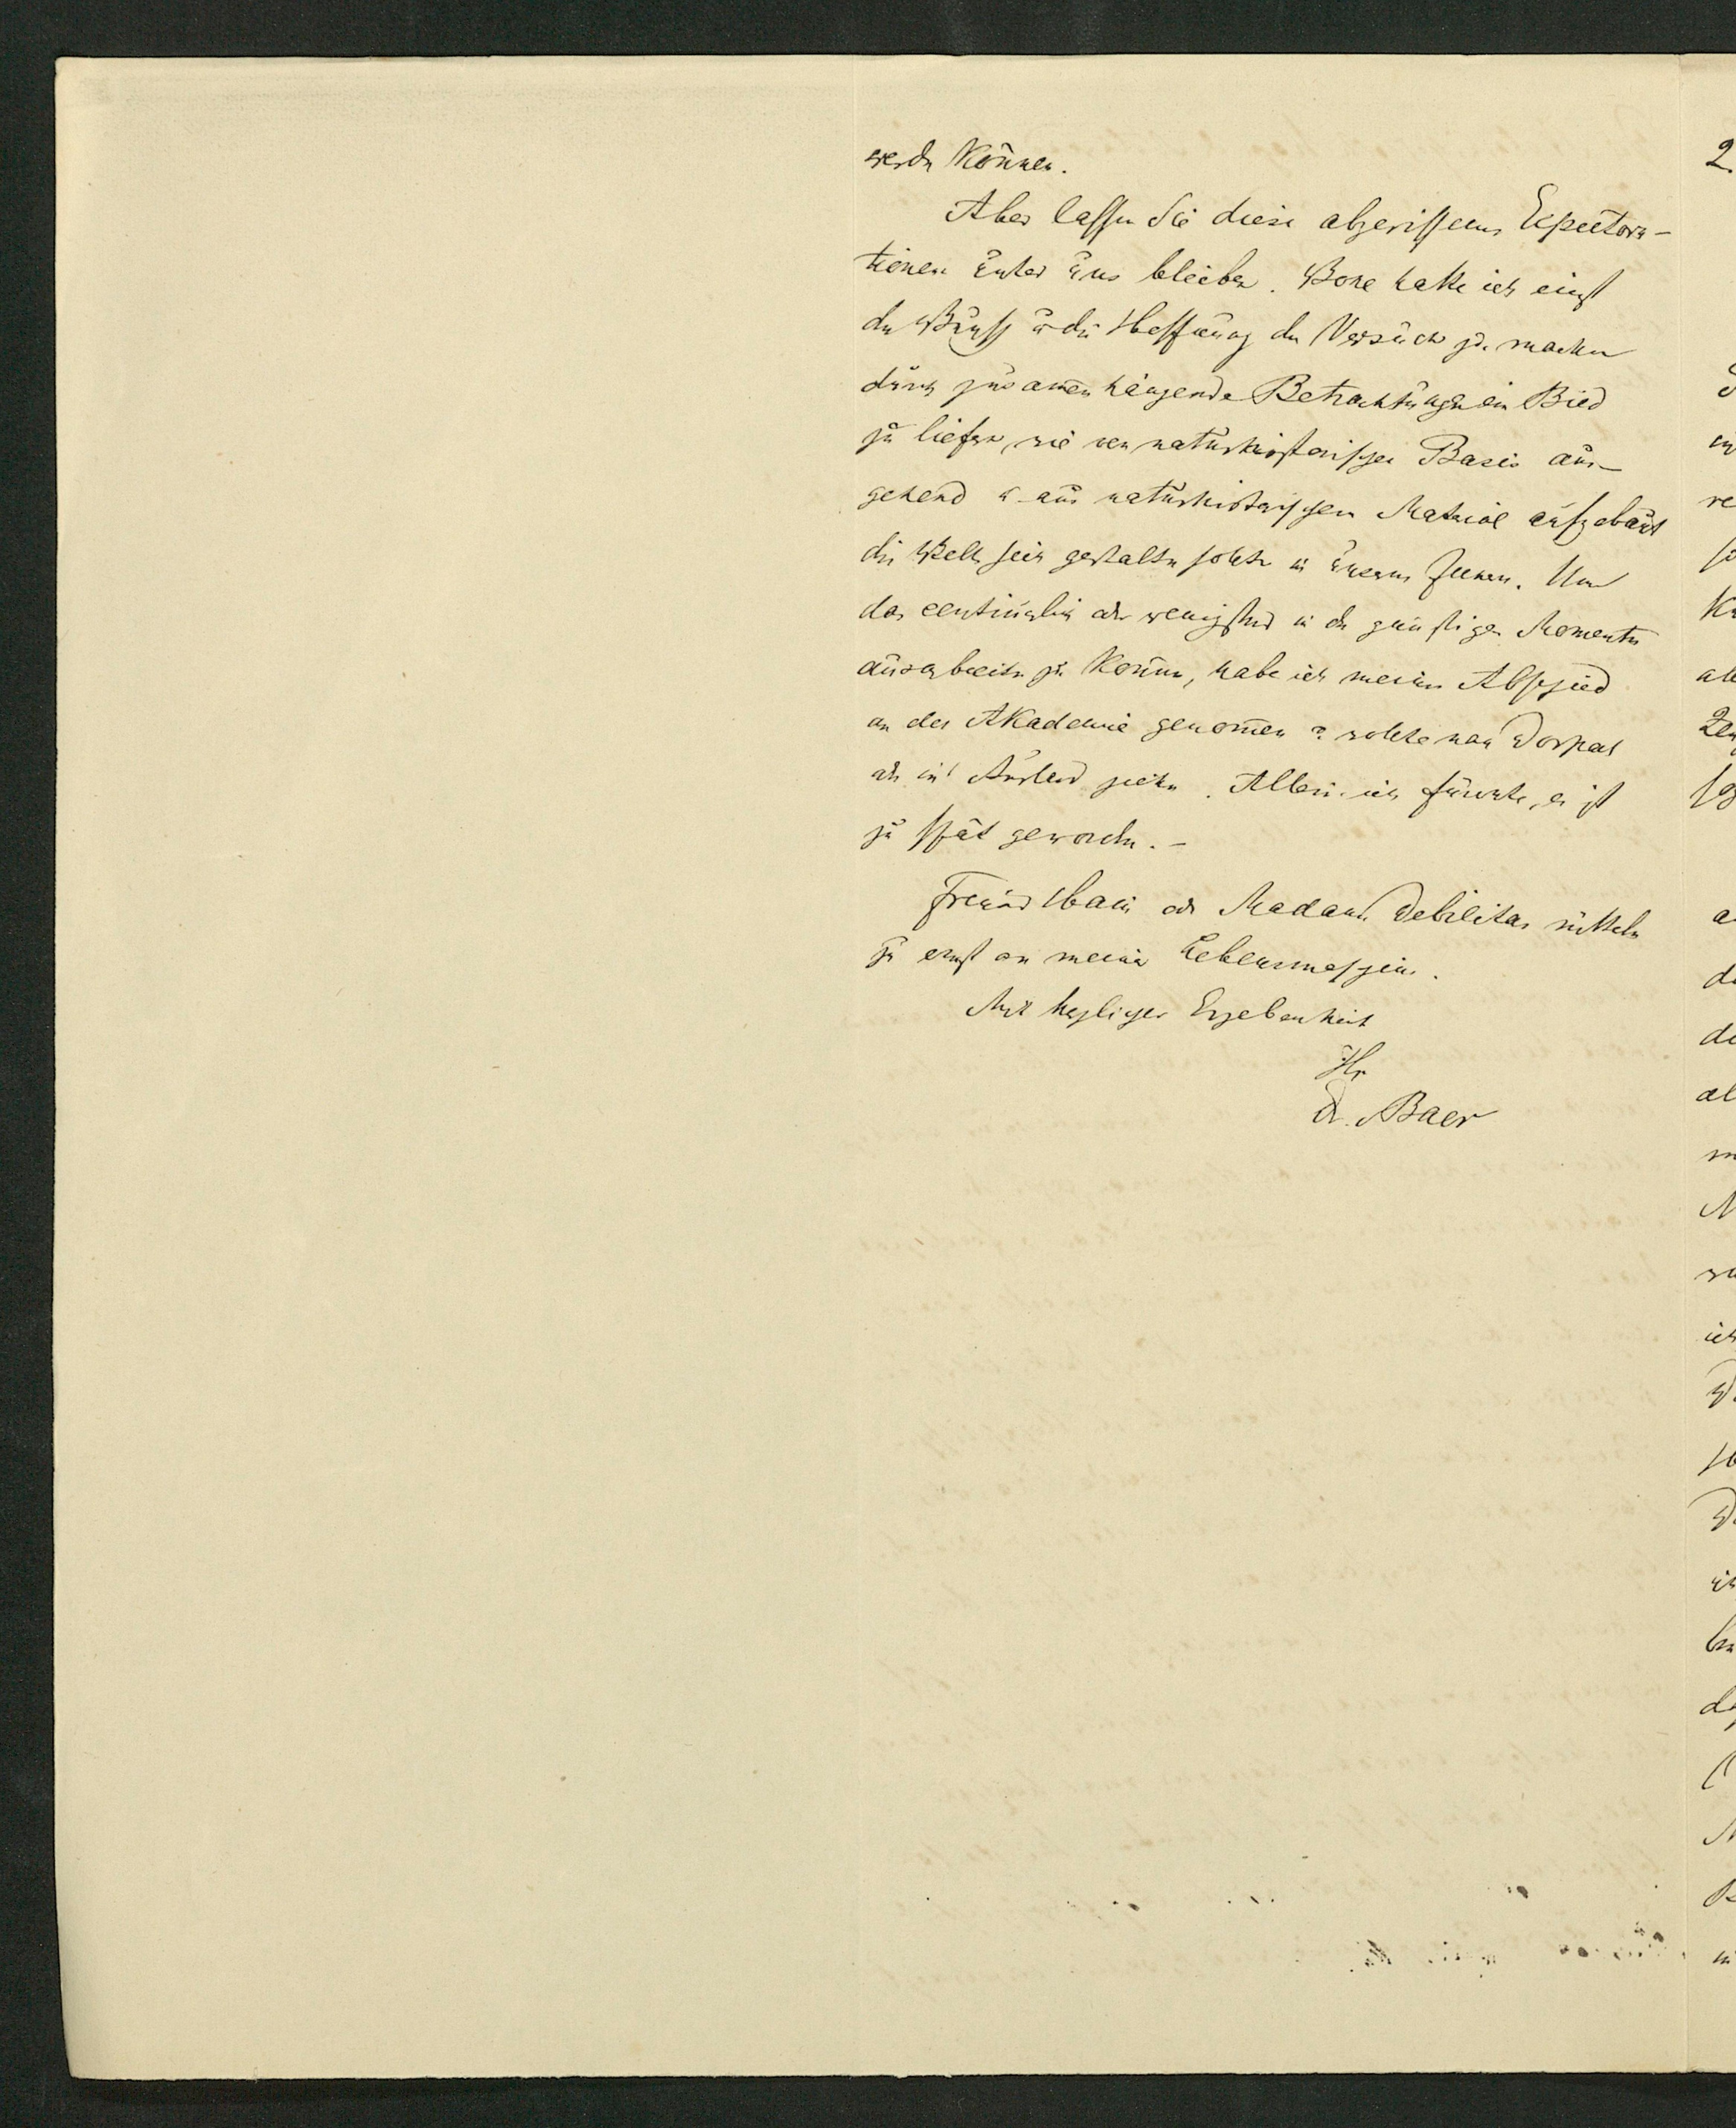 werdn können.
Aber lassen Sie diese abgerissenen Expectora-
tionen unter uns bleiben. hatte ich einst
den Wunsch u die Hoffnung den Versuch zu machen
durch zusam̄enhängende Betrachtungen ein Bild
zu liefern, wie von naturhistorischer Basis aus-
gehend u aus naturhistorischem Material aufgebaut
die Welt sich gestalten sollte in unserm Innern. Um
das continuirlich oder wenigstens in den günstigen Momenten
ausarbeiten zu könen, habe ich meinen Abschied
an der Akademie genom̄en u wollte nach Dorpat
oder in's Ausland ziehn. Allein ich fürchte, es ist
zu spät geworden. –
Freund Hain oder Madame Debilitas rütteln
zu ernst an meiner Lebensmaschine.
Mit herzlicher Ergebenheit
Ihr
Dr. Baer
2.